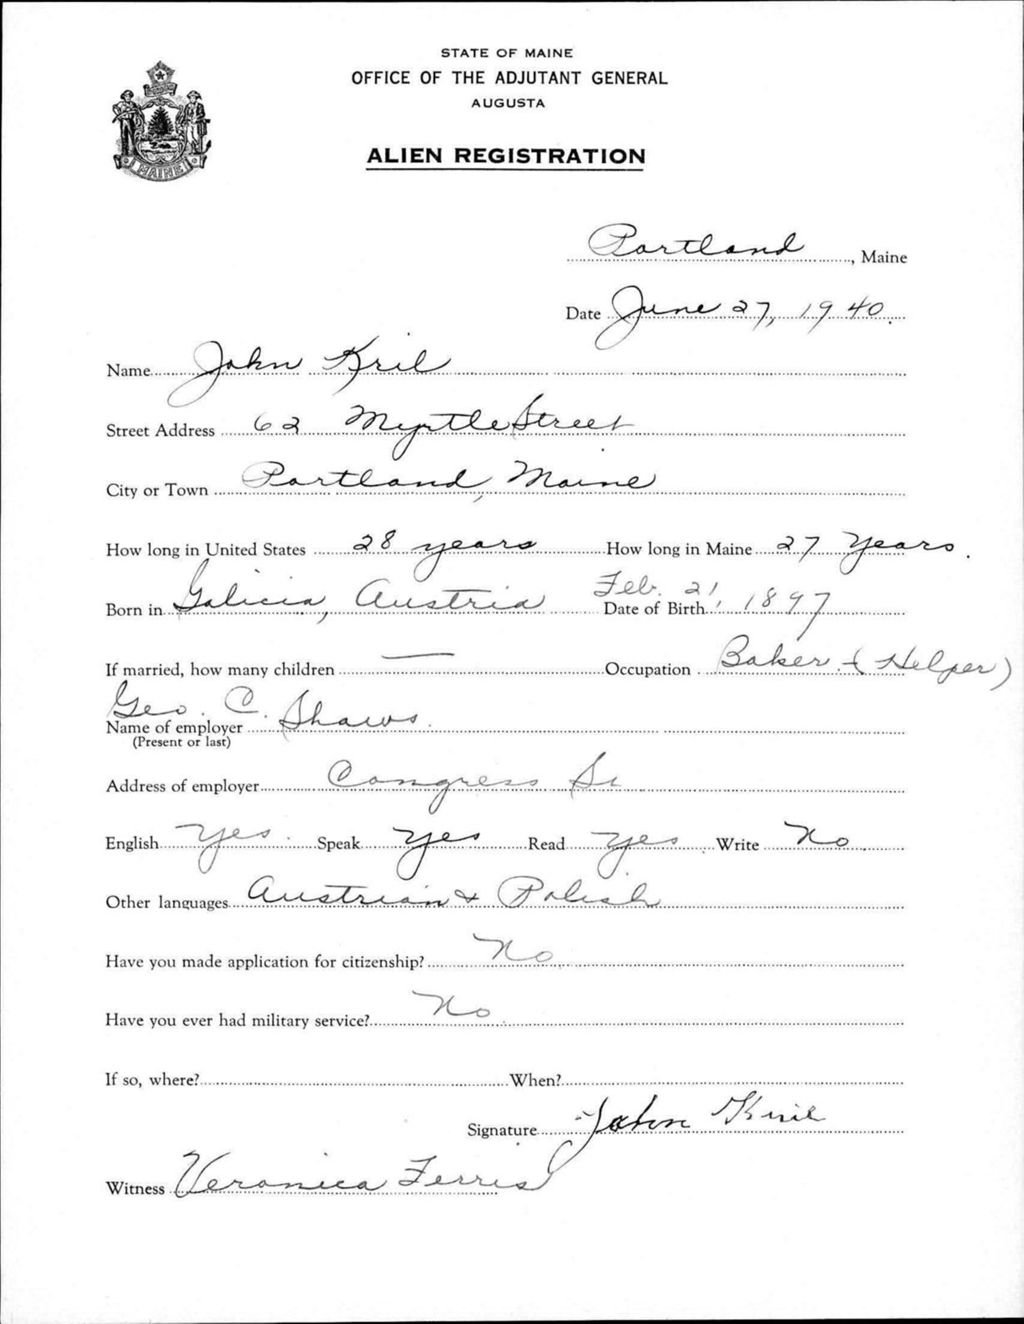 STATE OF MAINE
OFFICE OF THE ADJUTANT GENERAL
AUGUSTA
ALIEN REGISTRATION
MAINE
Portland, Maine
Date June 27, 1940.
Name John Kril
Street Address 62 Myrtle Street
City or Town Portland, Maine
How long in United States 28 years How long in Maine 27 Years.
Born in Galicia, Austria Date of Birth Feb. 21, 1897
If married, how many children — Occupation Baker (Helper)
Name of employer Geo. C. Shaws.
(Present or last)
Address of employer Congress St
English Yes. Speak Yes Read Yes Write No
Other languages Austrian & Polish
Have you made application for citizenship? No
Have you ever had military service? No
If so, where? When?
Signature John Kril
Witness Veronica Ferris